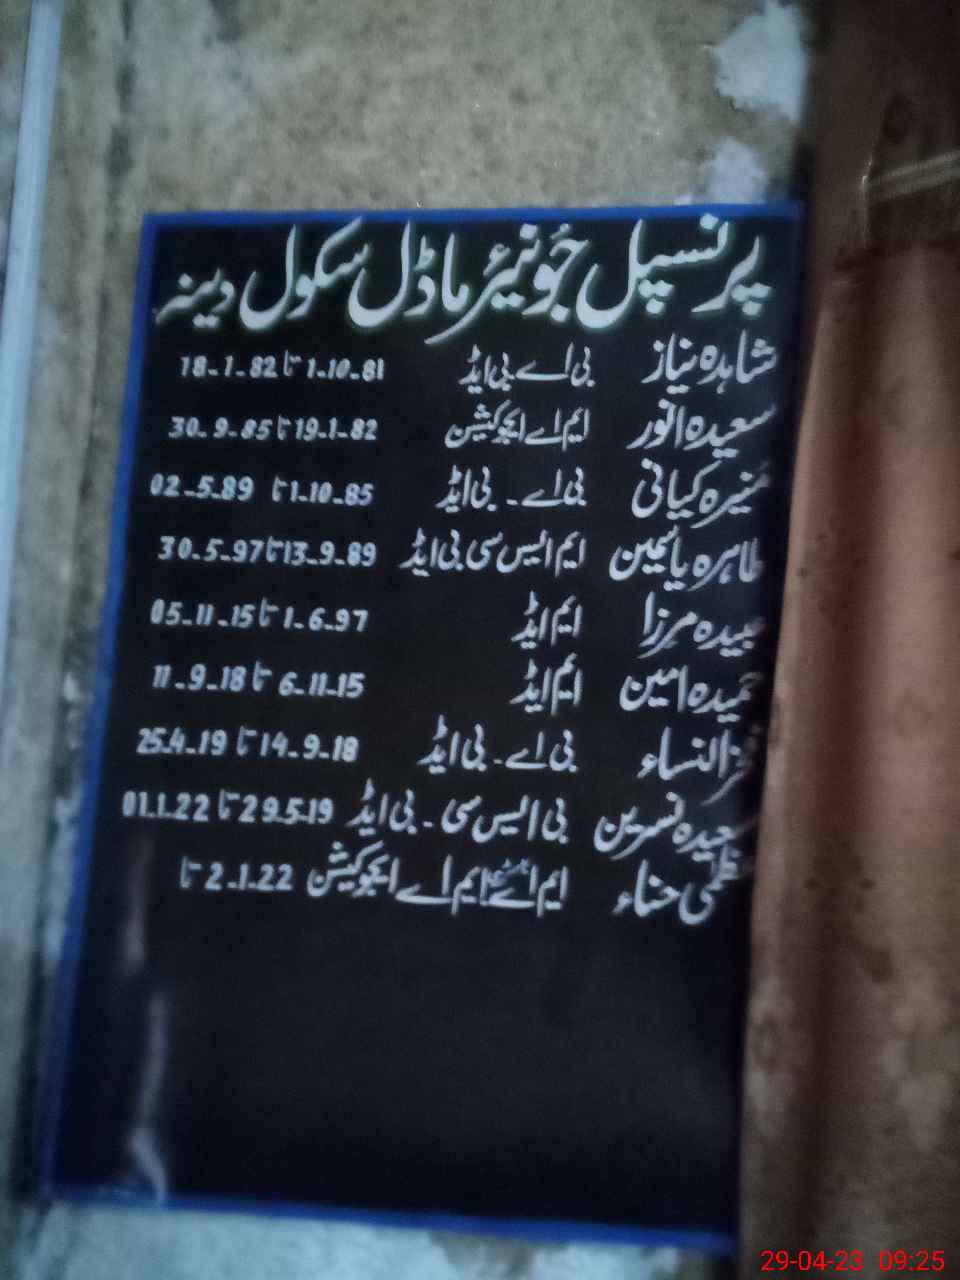 پرنسپل جونیئر ماڈل سکول دینہ
شاہدہ نیاز بی اے بی ایڈ 1-10-81 تا 18-1-82
سعیدہ انور ایم اے ایجوکیشن 19-1-82 تا 30-9-85
منیرہ کیانی بی اے - بی ایڈ 1-10-85 تا 02-5-89
طاہرہ یاسمین ایم ایس سی بی ایڈ 13-9-89 تا 30-5-97
مرزا ایم ایڈ 1-6-97 تا 05-11-15
حمیدہ امین ایم ایڈ 6-11-15 تا 11-9-18
النساء بی اے - بی ایڈ 14-9-18 تا 25-4-19
سعیدہ نسرین بی ایس سی - بی ایڈ 29-5-19 تا 01-1-22
عظمی حناء ایم اے ایم اے ایجوکیشن 2-1-22 تا
29-04-23 09:25